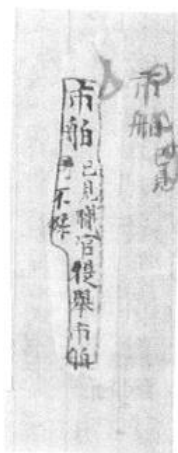 市舶已見
市舶
已見職官提舉市舶
不